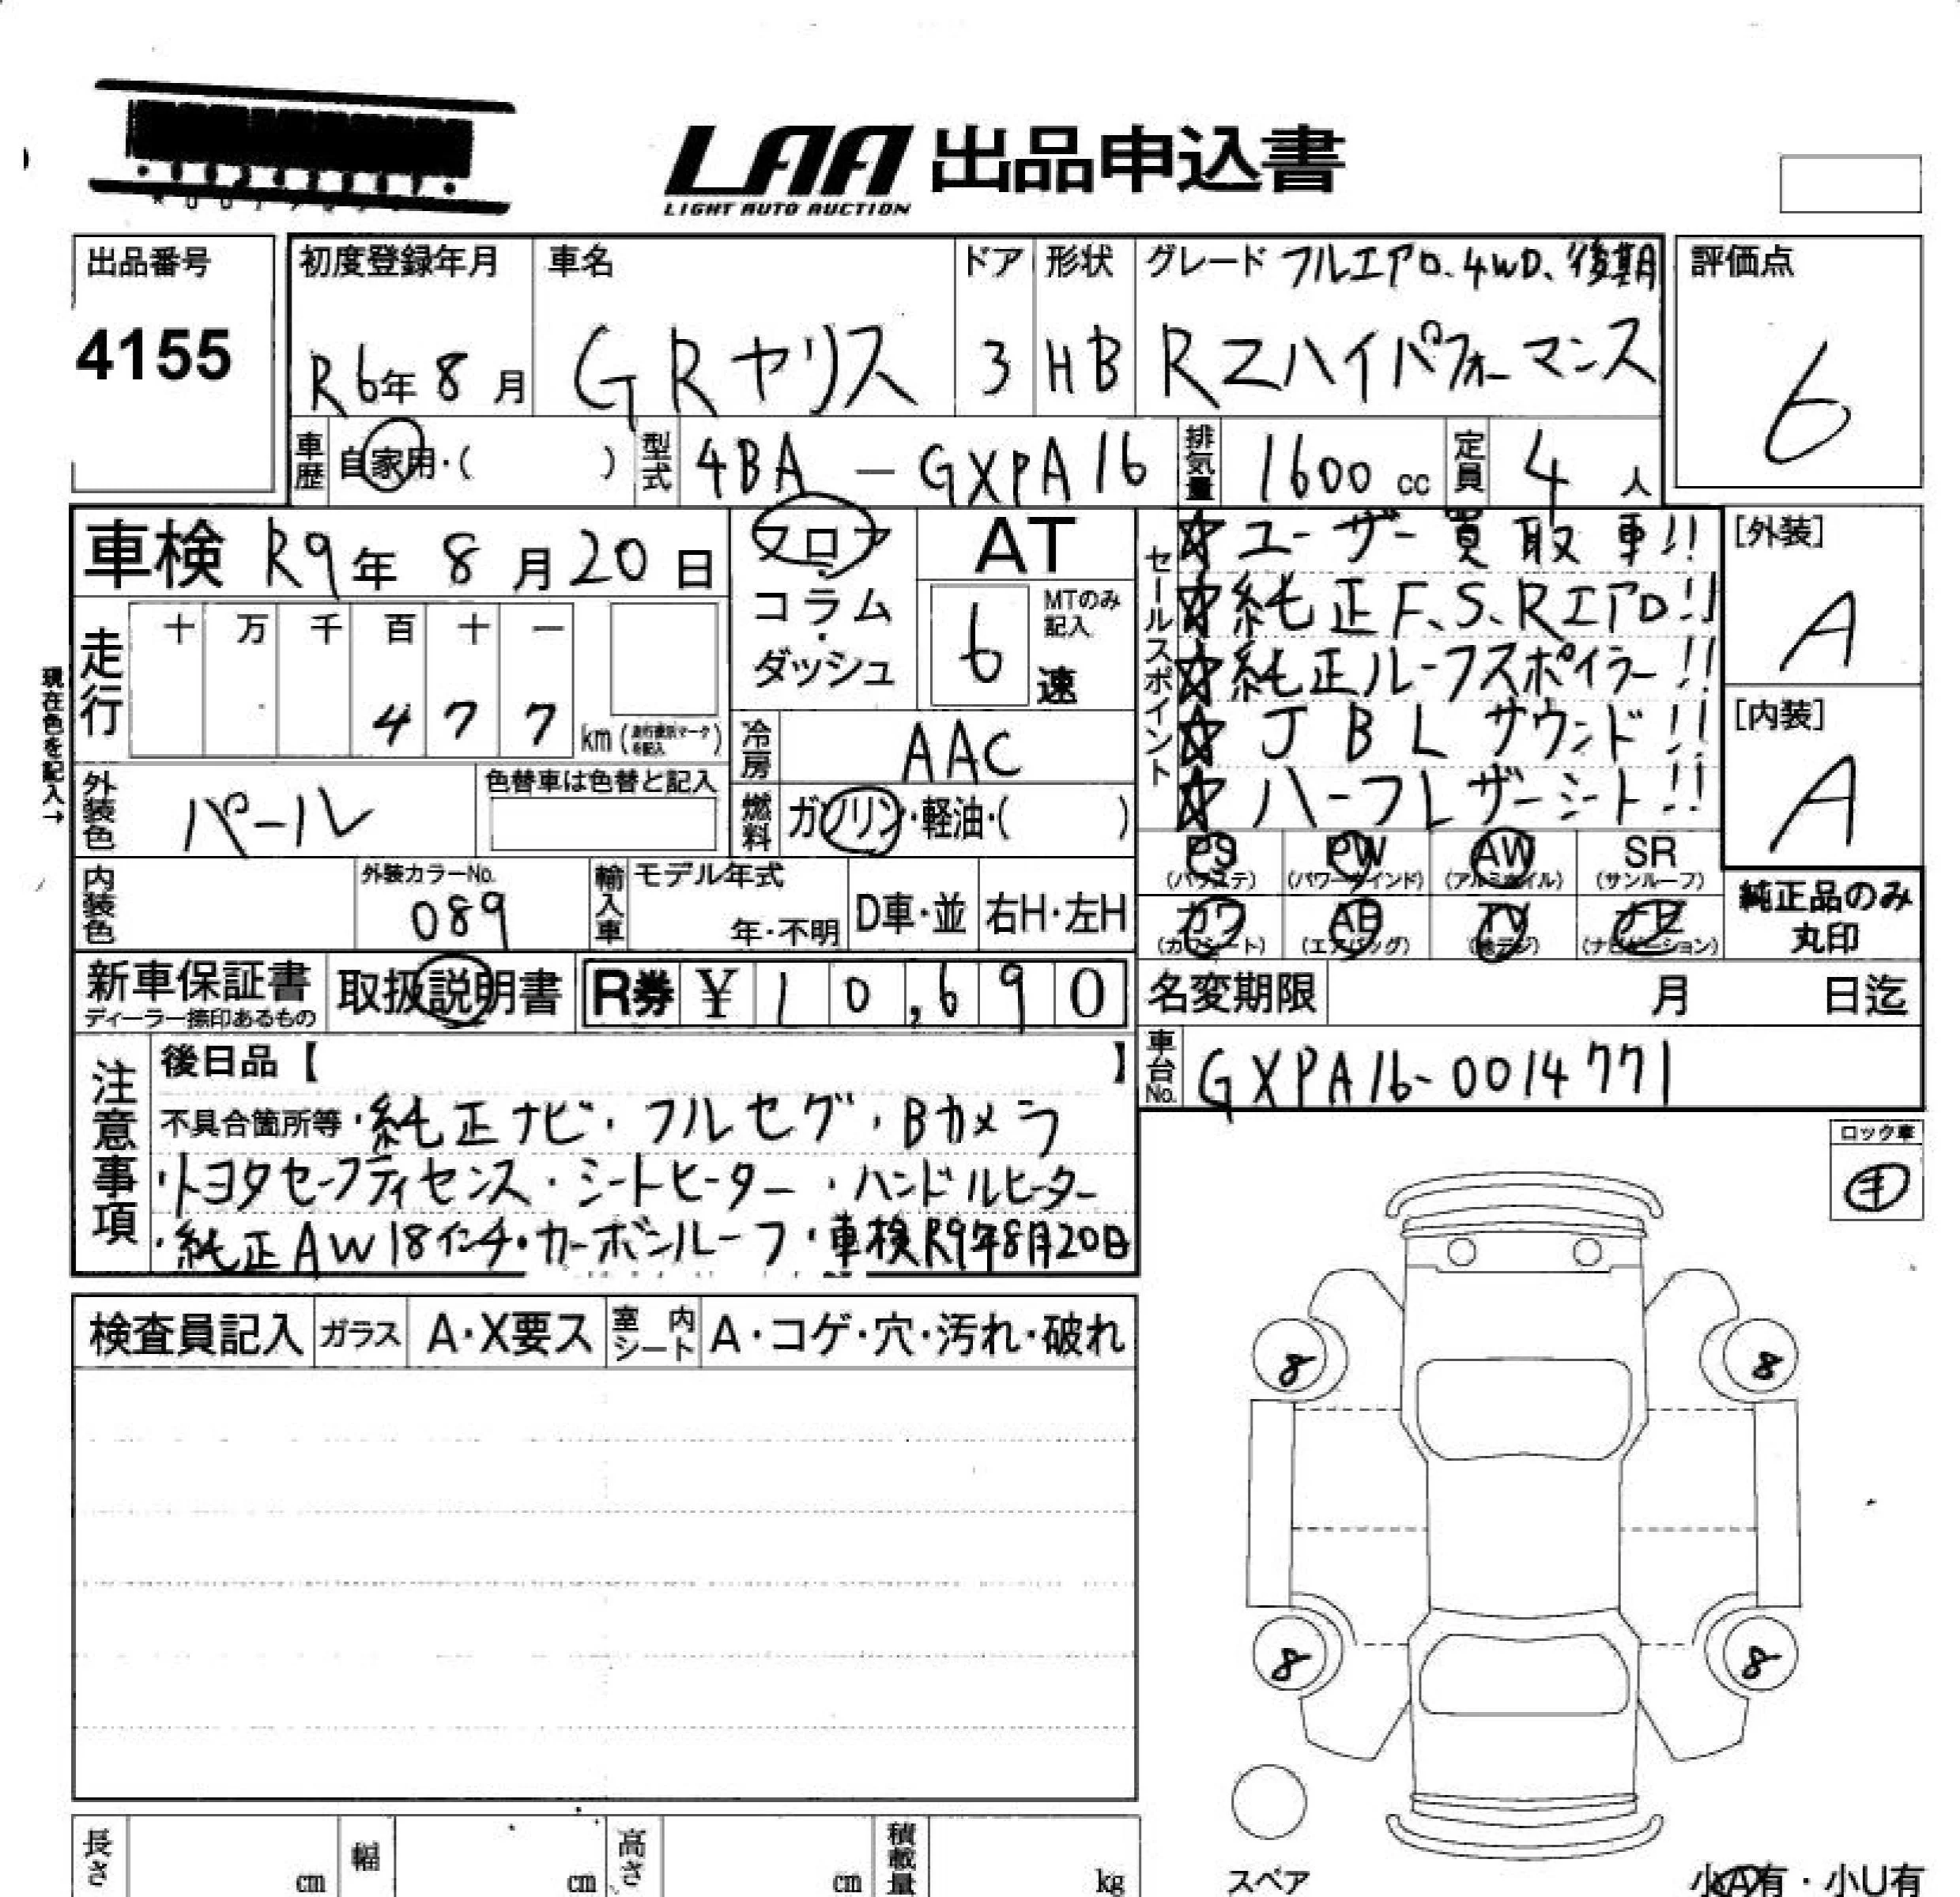 LAA 出品申込書
LIGHT AUTO AUCTION
出品番号
4155
初度登録年月
R6年8月
車名
GRヤリス
ドア
3
形状
HB
グレード フルエアロ、4WD、後期
RZハイパフォーマンス
評価点
6
車歴 自家用・( )
型式 4BA-GXPA16
排気量 1600 cc
定員 4人
車検 R9年8月20日
フロア・コラム・ダッシュ
AT
6
MTのみ記入
速
現在色を記入→
走行
十 万 千 百 十 一
4 7 7
km (走行表示マークを記入)
冷房 AAC
燃料 ガソリン・軽油・( )
外装色 パール
色替車は色替と記入
内装色
外装カラーNo.
089
輸入車
モデル年式
年・不明
D車・並
右H・左H
セールスポイント
☆ユーザー買取車!!
☆純正F、S、Rエアロ!!
☆純正ルーフスポイラー!!
☆JBLサウンド!!
☆ハーフレザーシート!!
[外装]
A
[内装]
A
PS
(パワステ)
PW
(パワーウインド)
AW
(アルミホイル)
SR
(サンルーフ)
カワ
(カワシート)
AB
(エアバッグ)
TV
(地デジ)
ナビ
(ナビゲーション)
純正品のみ
丸印
新車保証書
ディーラー捺印あるもの
取扱説明書
R券 ¥10,690
名変期限 月 日迄
車台No. GXPA16-0014771
注意事項
後日品【 】
不具合箇所等・純正ナビ・フルセグ・Bカメラ
・トヨタセーフティセンス・シートヒーター・ハンドルヒーター
・純正AW18インチ・カーボンルーフ・車検R9年8月20日
ロック車
検査員記入
ガラス A・X要ス
室内シート A・コゲ・穴・汚れ・破れ
8
8
8
8
スペア
小A有・小U有
長さ cm
幅 cm
高さ cm
積載量 kg